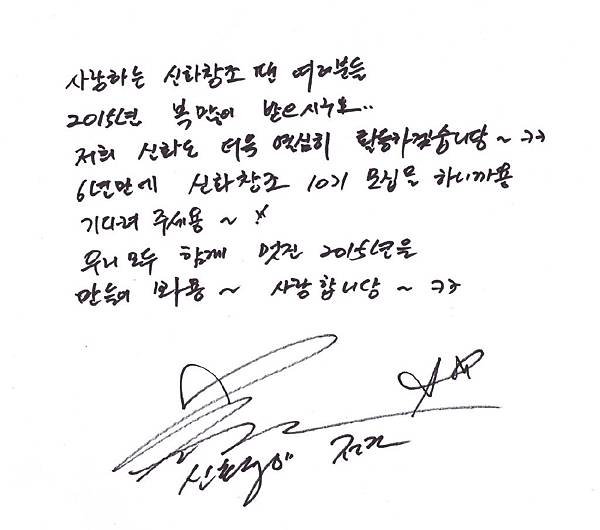 사랑하는 신화창조 팬 여러분들
2015년 복 많이 받으시구요..
저희 신화도 더욱 열심히 활동하겠습니당~ㅋㅋ
6년만에 신화창조 10기 모집을 하니까용
기다려 주세용~
우리 모두 함께 멋진 2015년을
만들어 봐용~ 사랑합니당~ㅋㅋ
신화